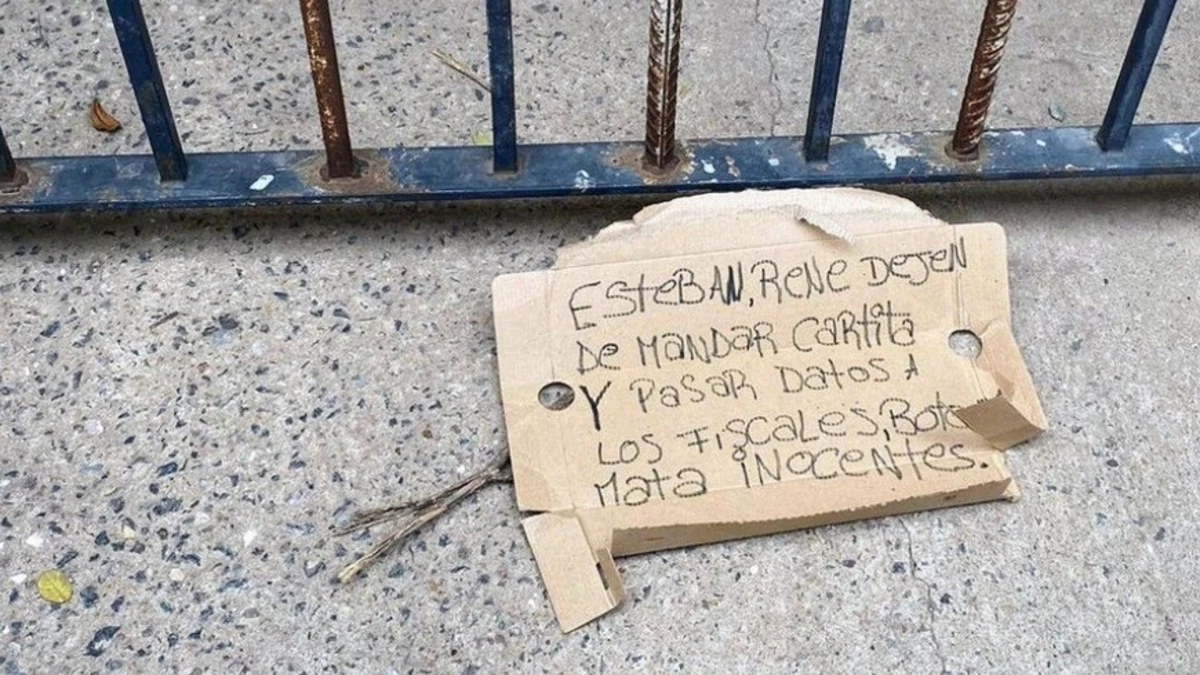 ESteBAN, RENe DEjEN
De MANDAR CARtita
Y PASAR DAtoS A
LOS FiSCALES,
MAtA iNOCENtES.